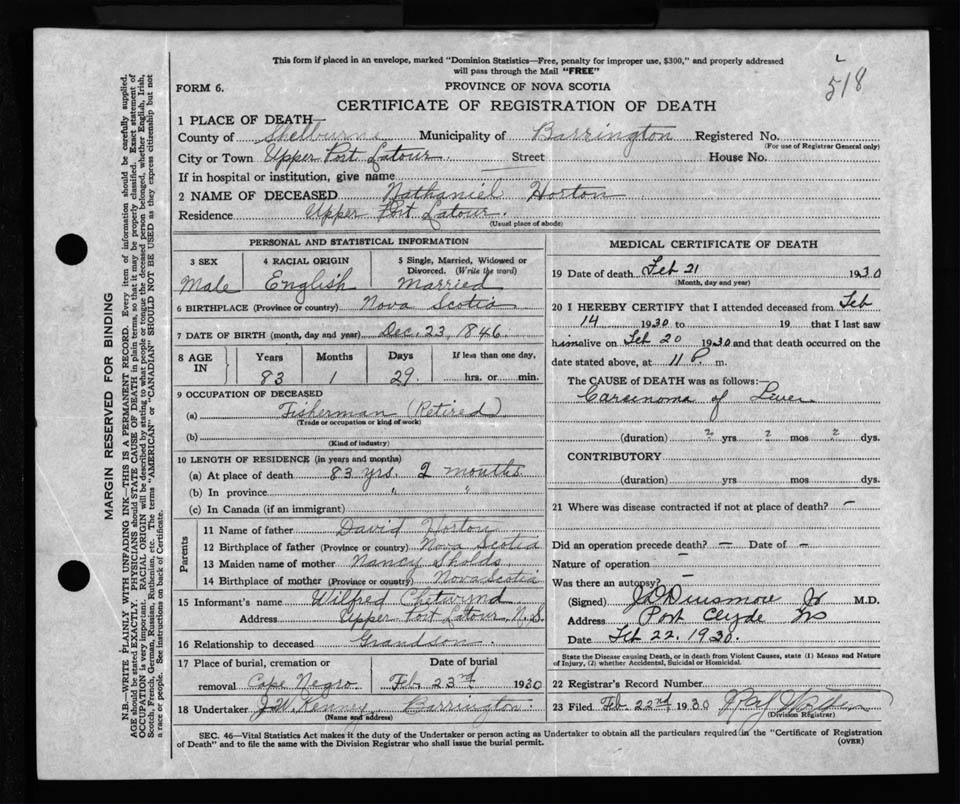 This form if placed in an envelope, marked "Dominion Statistics—Free, penalty for improper use, $300," and properly addressed
will pass through the Mail "FREE"
518
FORM 6.
PROVINCE OF NOVA SCOTIA
CERTIFICATE OF REGISTRATION OF DEATH
1 PLACE OF DEATH—
County of Shelburne Municipality of Barrington Registered No.
(For use of Registrar General only)
City or Town Upper Port Latour. Street House No.
If in hospital or institution, give name
2 NAME OF DECEASED Nathaniel Horton
Residence Upper Port Latour.
(Usual place of abode)
PERSONAL AND STATISTICAL INFORMATION
3 SEX 4 RACIAL ORIGIN 5 Single, Married, Widowed or
Divorced. (Write the word)
Male English Married
6 BIRTHPLACE (Province or country) Nova Scotia
7 DATE OF BIRTH (month, day and year) Dec. 23, 1846.
8 AGE IN Years Months Days If less than one day,
83 1 29. hrs. or min.
9 OCCUPATION OF DECEASED
(a) Fisherman (Retired)
(Trade or occupation or kind of work)
(b)
(Kind of industry)
10 LENGTH OF RESIDENCE (in years and months)
(a) At place of death 83 yrs. 2 months
(b) In province " "
(c) In Canada (if an immigrant)
Parents
11 Name of father David Horton
12 Birthplace of father (Province or country) Nova Scotia
13 Maiden name of mother Nancy Sholds
14 Birthplace of mother (Province or country) Nova Scotia
15 Informant's name Wilfred Chetwynd
Address Upper Port Latour, N.S.
16 Relationship to deceased Grandson.
17 Place of burial, cremation or Date of burial
removal Cape Negro Feb. 23rd 1930
18 Undertaker J.W. Kenney Barrington.
(Name and address)
MEDICAL CERTIFICATE OF DEATH
19 Date of death Feb 21 1930
(Month, day and year)
20 I HEREBY CERTIFY that I attended deceased from Feb
14 1930 to 19 that I last saw
him alive on Feb 20 1930 and that death occurred on the
date stated above, at 11 P. m.
The CAUSE OF DEATH was as follows:—
Carcinoma of Liver
(duration) ? yrs ? mos ? dys.
CONTRIBUTORY
(duration) yrs mos dys.
21 Where was disease contracted if not at place of death? —
Did an operation precede death? — Date of —
Nature of operation —
Was there an autopsy? —
(Signed) Dinsmore Jr M.D.
Address Port Clyde NS
Date Feb 22. 1930.
State the Disease causing Death, or in death from Violent Causes, state (1) Means and Nature
of Injury, (2) whether Accidental, Suicidal or Homicidal.
22 Registrar's Record Number
23 Filed Feb 22nd 1930 Ray
(Division Registrar)
SEC. 46—Vital Statistics Act makes it the duty of the Undertaker or person acting as Undertaker to obtain all the particulars required in the "Certificate of Registration
of Death" and to file the same with the Division Registrar who shall issue the burial permit.
(OVER)
MARGIN RESERVED FOR BINDING
N.B.—WRITE PLAINLY WITH UNFADING INK—THIS IS A PERMANENT RECORD. Every item of information should be carefully supplied.
AGE should be stated EXACTLY. PHYSICIANS should STATE CAUSE OF DEATH in plain terms, so that it may be properly classified. Exact statement of
OCCUPATION is very important. RACIAL ORIGIN will be described by stating to what people or tongue the deceased person belonged, whether English, Irish,
Scotch, French, German, Russian, Ruthenian, etc. The terms "AMERICAN" or "CANADIAN" SHOULD NOT BE USED as they express citizenship but not
a race or people. See instructions on back of Certificate.